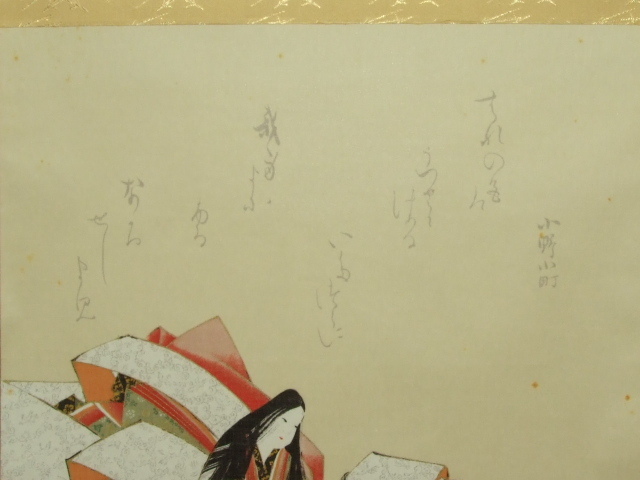 小野小町
はなの色は
うつりに
けりな
いたつらに
我身よに
ふる
なかめ
せし
まに